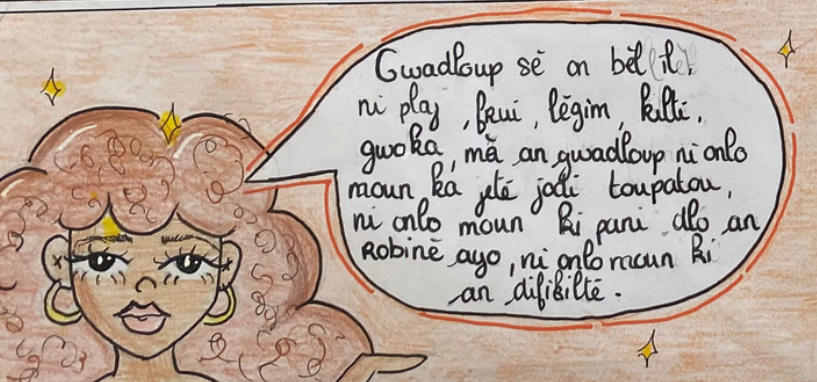 Gwadloup sé on bèl ilèt,
ni plaj, frui, légim, kilti,
gwoka, mã an gwadloup ni onlo
moun ka jété jodi toupatou,
ni onlo moun ki pani dlo an
Robinè ayo, ni onlo moun ki
an difikilté.